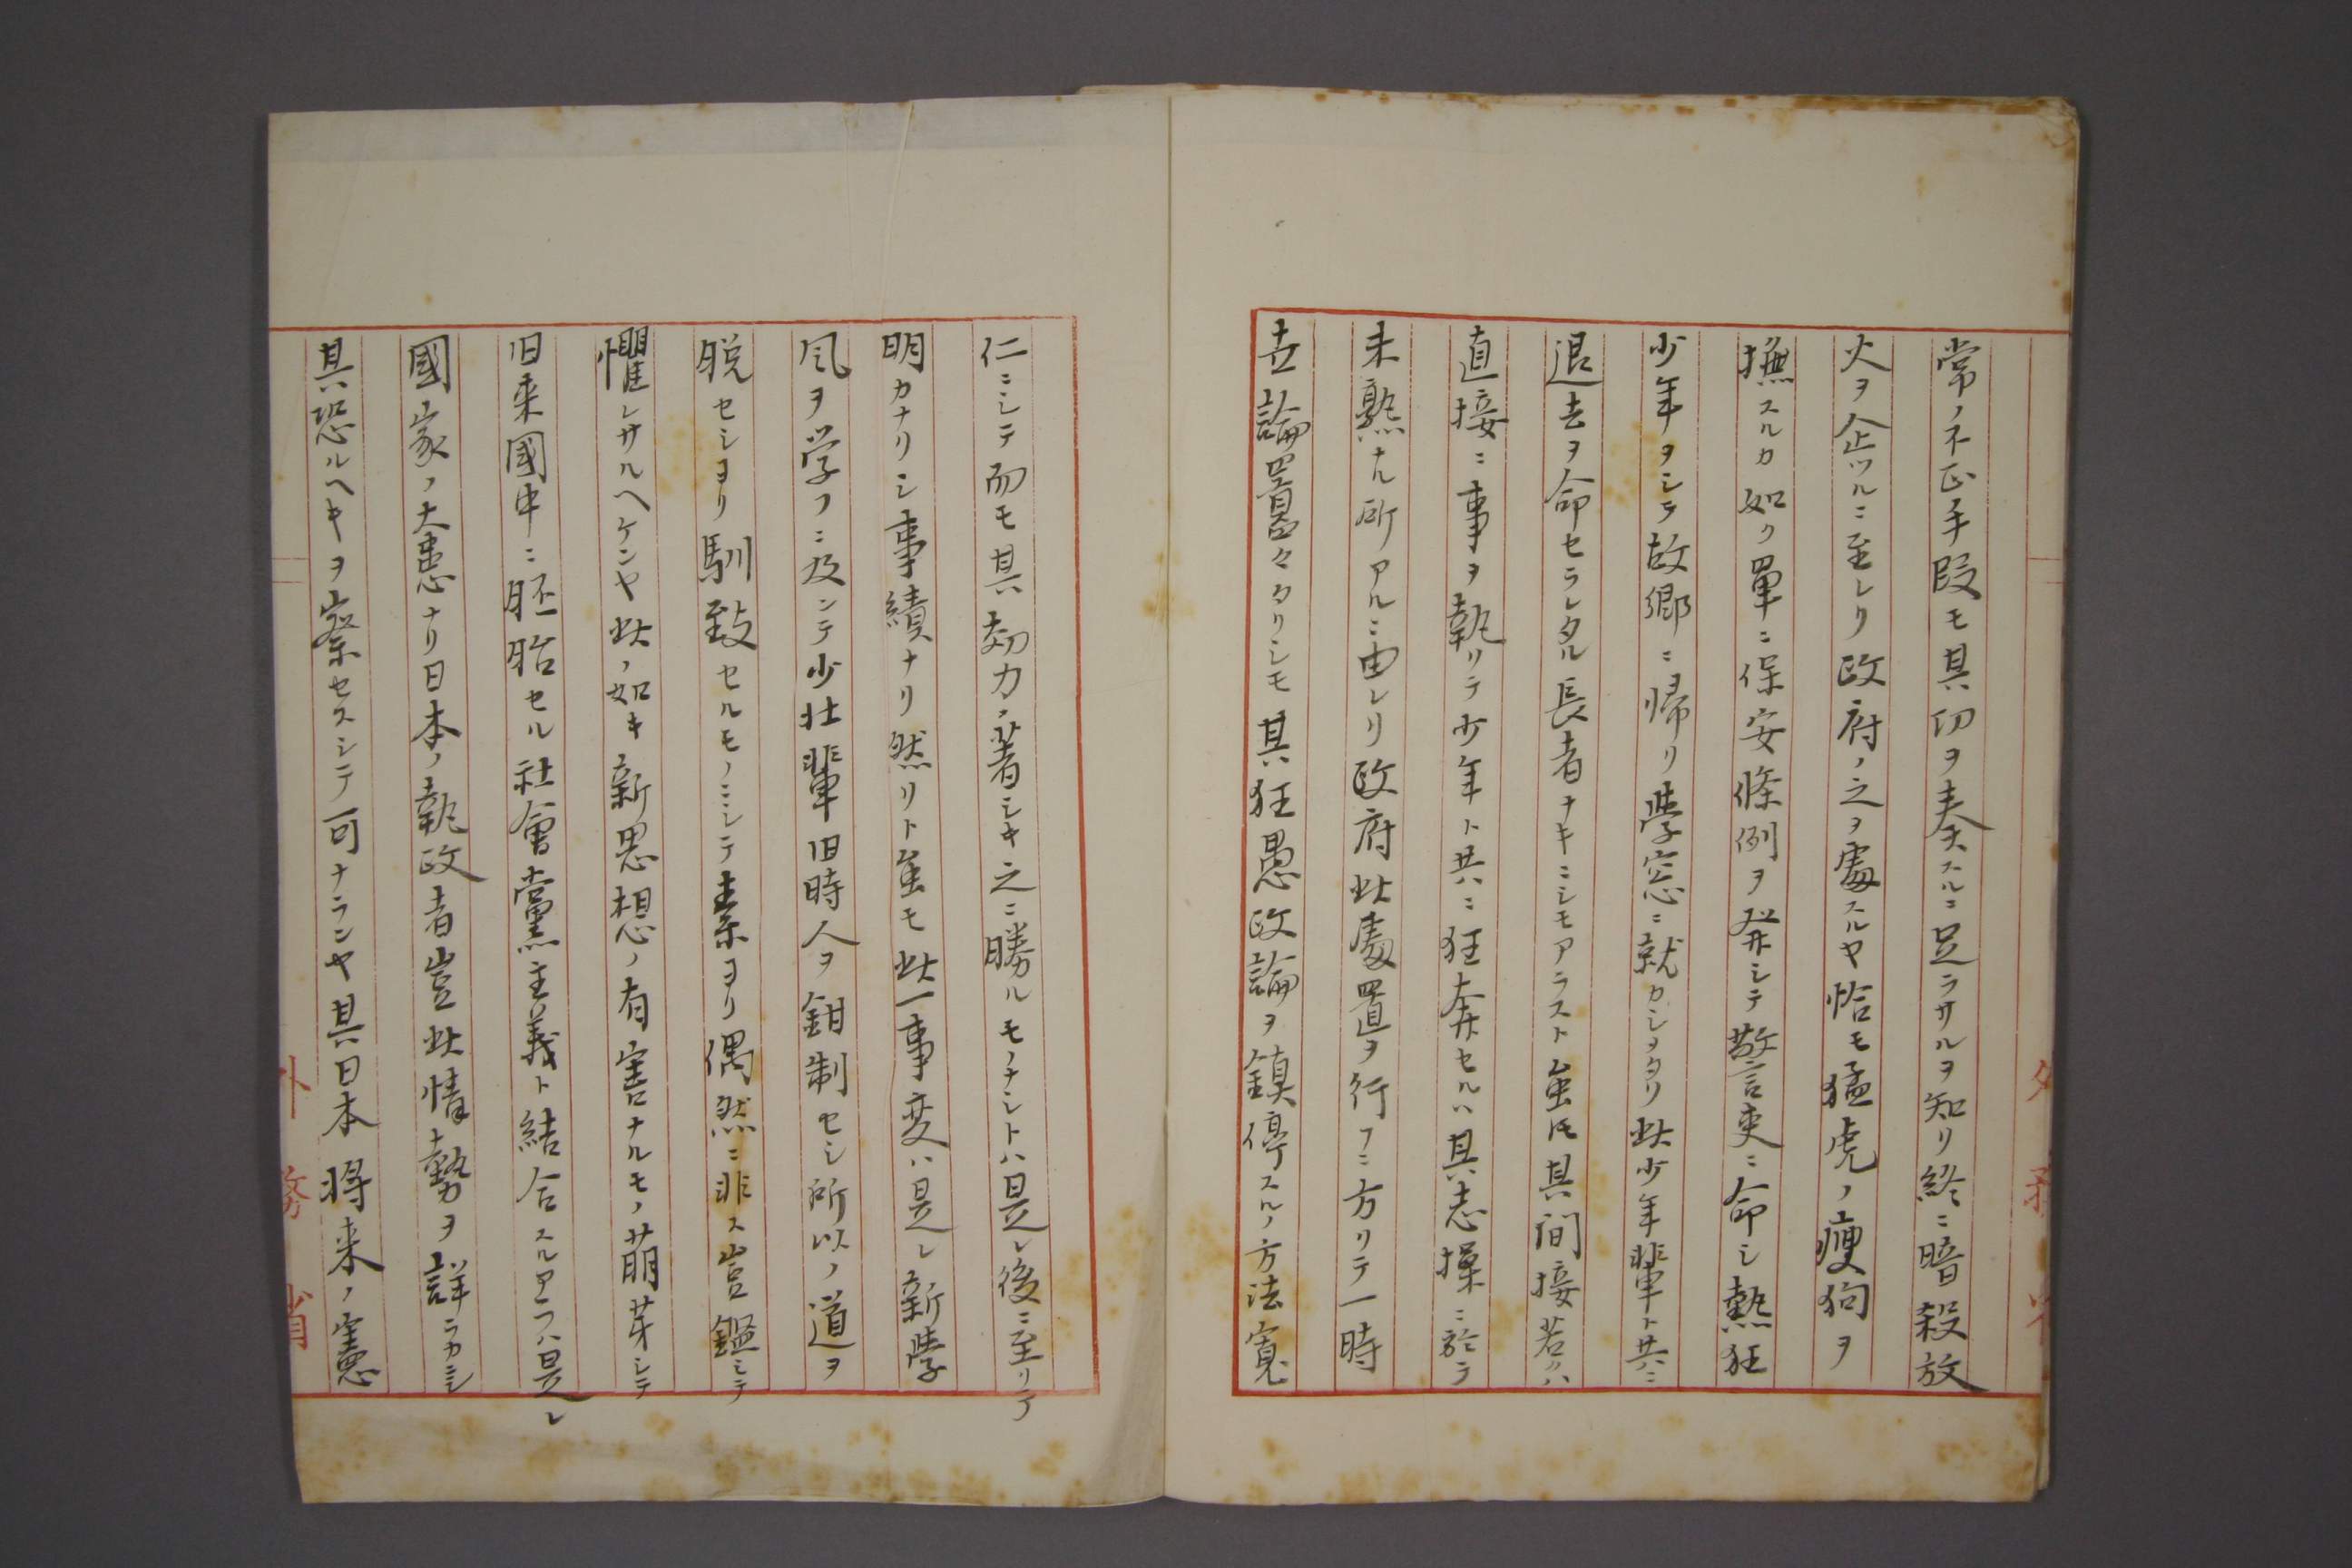 常ノ不正手段モ其切ヲ奏スルニ足ラサルヲ知リ終ニ暗殺放
火ヲ企ツルニ至レリ政府ノ之ヲ處スルヤ恰モ猛虎ノ痩狗ヲ
撫スルカ如ク單ニ保安條例ヲ発シテ警吏ニ命シ熱狂
少年ヲシテ故郷ニ帰リ學窓ニ就カシメタリ此少年輩ト共ニ
退去ヲ命セラレタル長者ナキニシモアラスト雖トモ其間接若クハ
直接ニ事ヲ執リテ少年ト共ニ狂奔セルハ其志操ニ於テ
未熟ナル所アルニ由レリ政府此處置ヲ行フニ方リテ一時
壵論囂々タリシモ其狂愚政論ヲ鎮停スルノ方法寛
仁ニシテ而モ其効力ノ著シキ之ニ勝ルモノナシトハ是レ後ニ至リテ
明カナリシ事績ナリ然リト雖モ此一事変ハ是レ新學
風ヲ学フニ及ンテ少壮輩旧時人ヲ鉗制セシ所以ノ道ヲ
脱セシヨリ馴致セルモノニシテ素ヨリ偶然ニ非ス豈鑑シテ
懼レサルヘケンヤ此ノ如キ新思想ノ有害ナルモノ萌芽シテ
旧来國中ニ胚胎セル社會黨主義ト結合スルアラハ是レ
國家ノ大患ナリ日本ノ執政者豈此情勢ヲ詳ラカニシ
其恐ルヘキヲ察セスシテ可ナランヤ其日本将来ノ憲
外務省